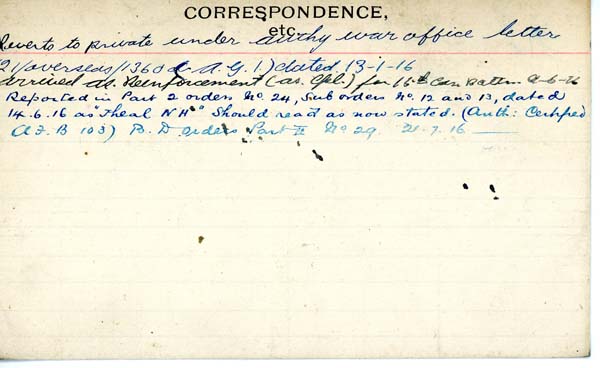 CORRESPONDENCE,
etc.
Reverts to private under authy war office letter
21/overseas/1360 (A.G.1.) dated 13-1-16
arrived as Reinforcement (as. Cpl.) for 16th Can Battn 2-6-16
Reported in Part 2 orders No. 24, Sub orders No. 12 and 13, dated
14.6.16 as "Theal N H" Should read as now stated. (Auth: Certified
A.F. B 103) P. D orders Part II No 29. 21.7.16